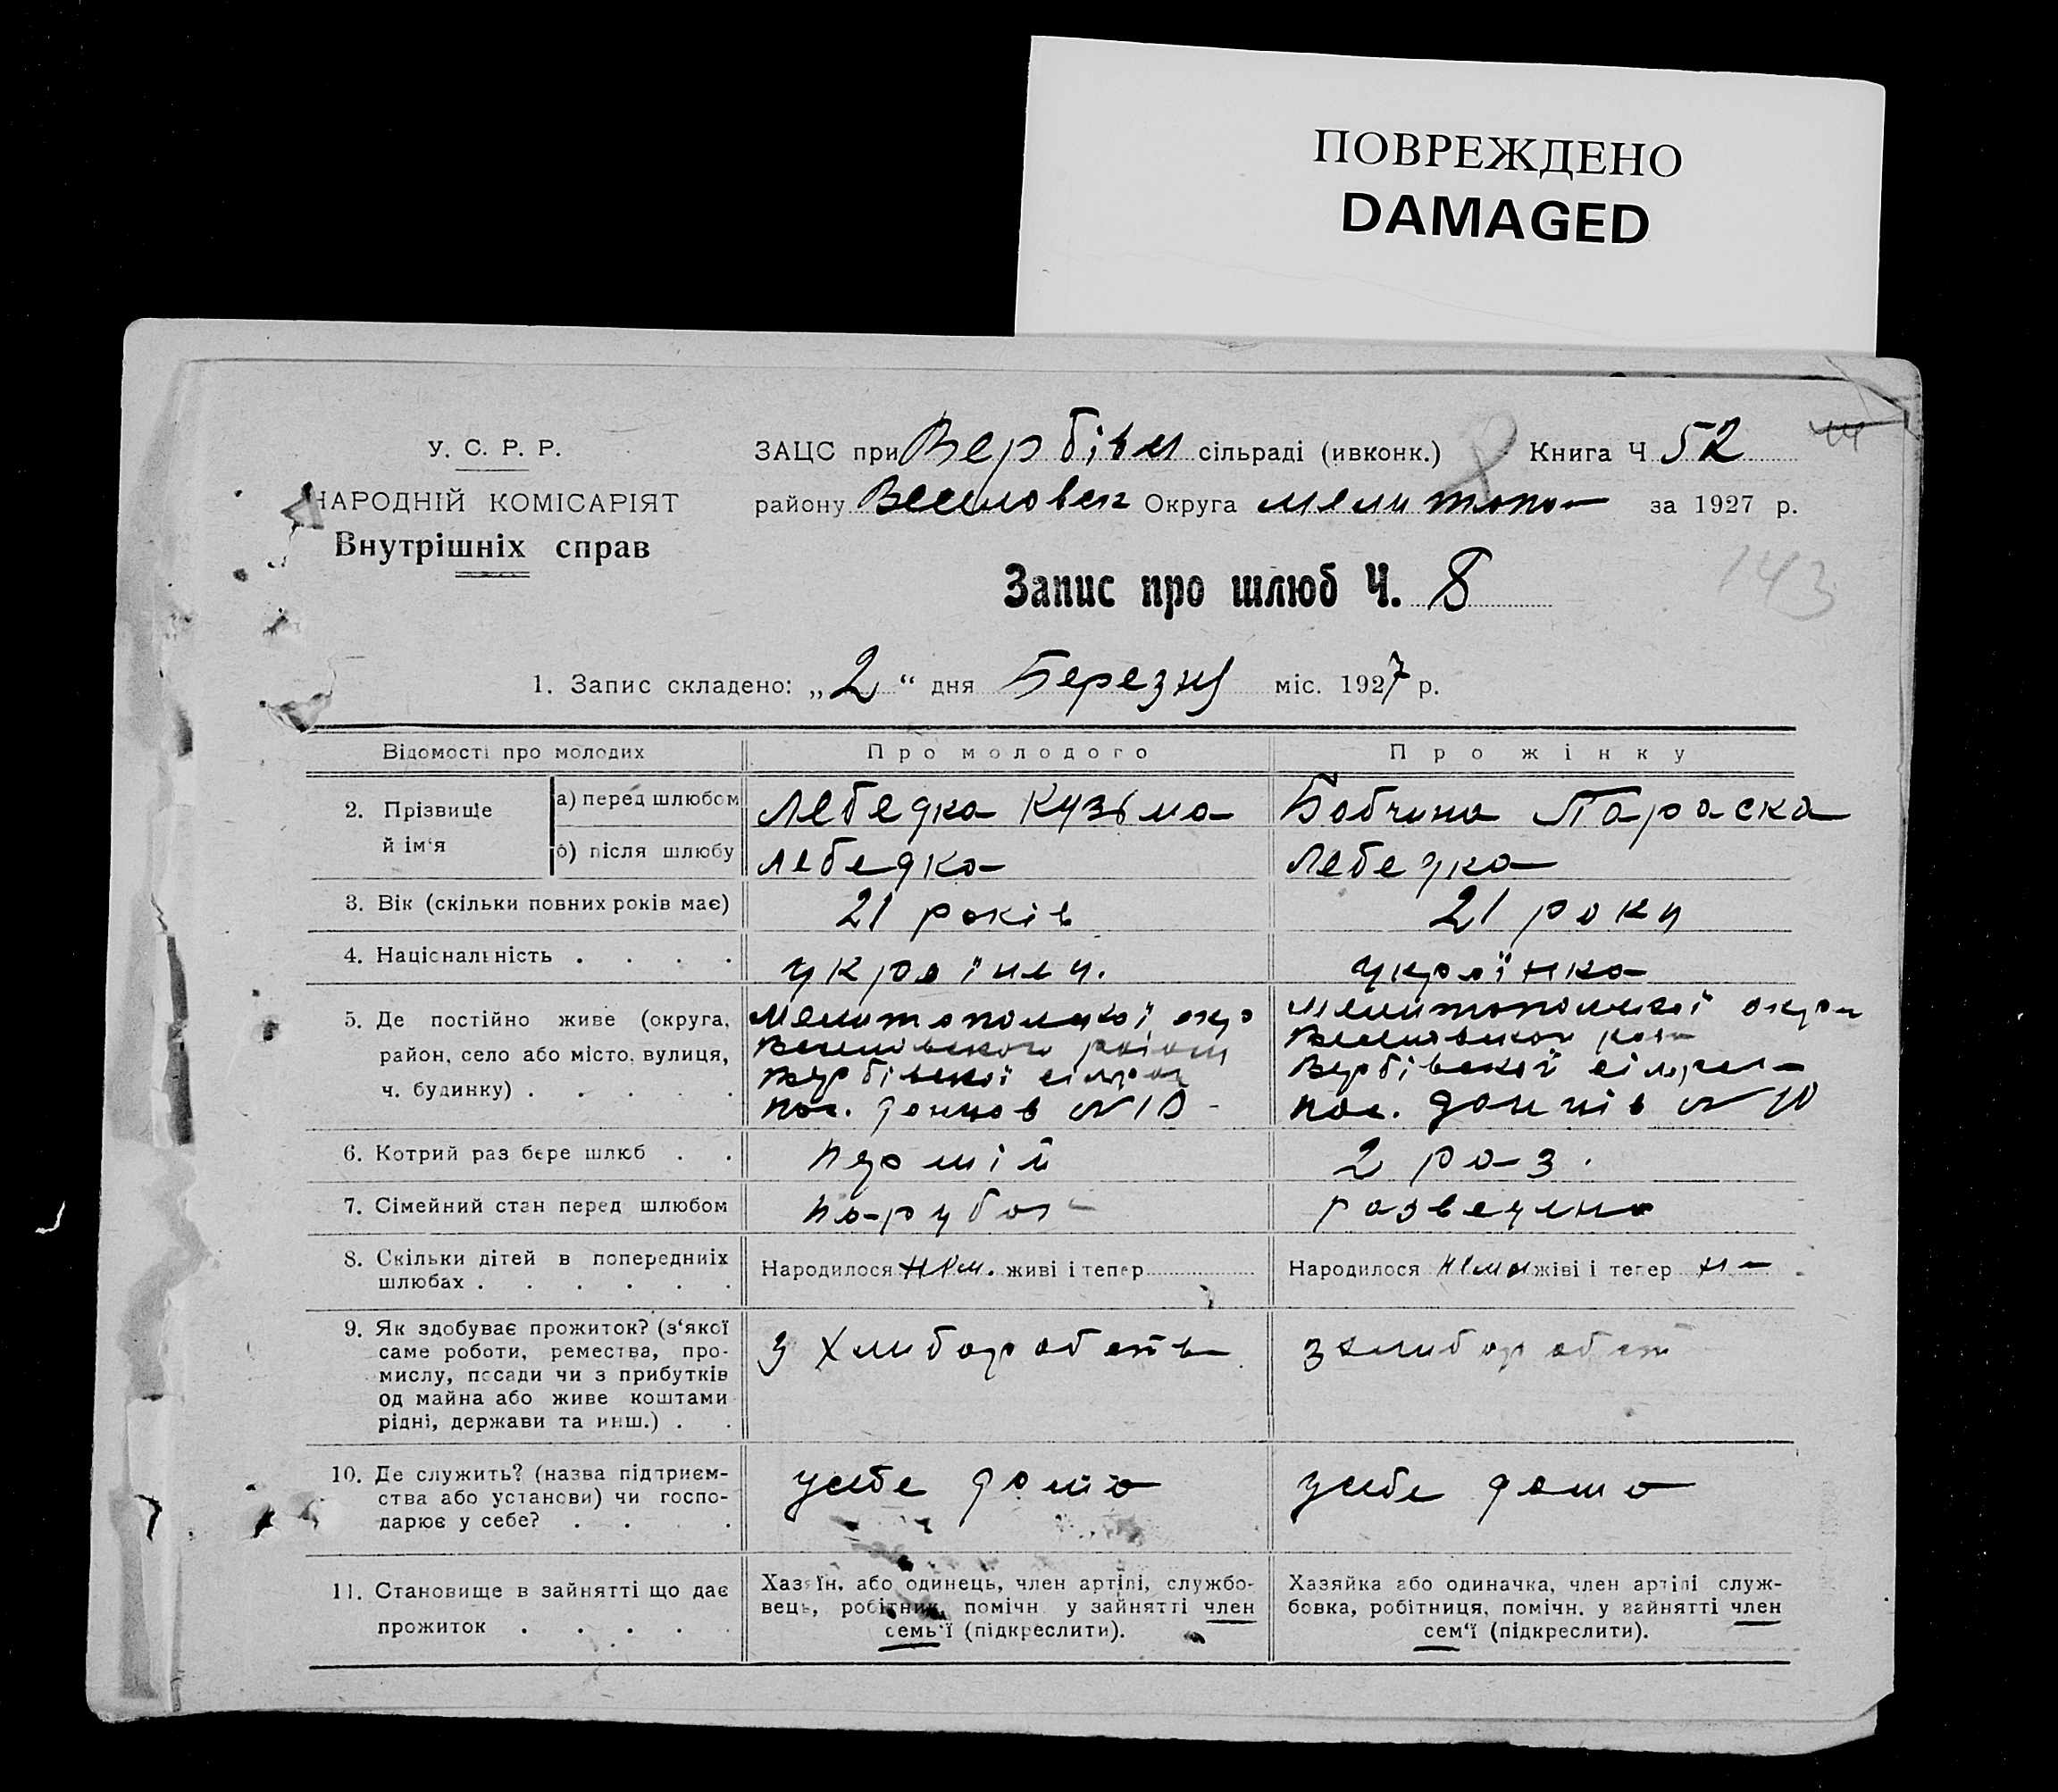 ПОВРЕЖДЕНО
DAMAGED
У. С. Р. Р.
НАРОДНІЙ КОМІСАРІЯТ
Внутрішніх справ
ЗАЦС при Вербівк сільраді (ивконк.) Книга Ч 52
району Веселовск Округа Мелитопол за 1927 р.
143
Запис про шлюб Ч. 8
1. Запис складено: „2“ дня Березня міс. 1927 р.
Відомості про молодих Про молодого Про жінку
2. Прізвище й ім'я
а) перед шлюбом Лебедка Кузьма Бабчина Параска
б) після шлюбу Лебедка Лебедка
3. Вік (скільки повних років має) 21 років 21 роки
4. Національність . . . . українец. українка
5. Де постійно живе (округа,
район, село або місто, вулиця,
ч. будинку) . . . . .
Мелитопольської окр
Веселовского района
Вербівської сільрад
пос. Донцов №10
Мелитопольської окри
Веселовского райо
Вербівської сільрад
пос. Донців №10
6. Котрий раз бере шлюб . . перший 2 раз.
7. Сімейний стан перед шлюбом парубок разведена
8. Скільки дітей в попередниіх
шлюбах . . . . . .
Народилося нем. живі і тепер
Народилося нема жіві і тепер н
9. Як здобуває прожиток? (з'якої
саме роботи, ремества, про-
мислу, посади чи з прибутків
од майна або живе коштами
рідні, держави та инш.) . .
з хлиборобств
з хлиборобст
10. Де служить? (назва підприєм-
ства або установи) чи госпо-
дарює у себе? . . . .
у себе дома
у себе дома
11. Становище в зайнятті що дає
прожиток . . . . .
Хазяїн, або одинець, член артілі, службо-
вець, робітник, помічн. у зайнятті член
семь'ї (підкреслити).
Хазяйка або одиначка, член артілі служ-
бовка, робітниця, помічн. у зайнятті член
сем'ї (підкреслити).